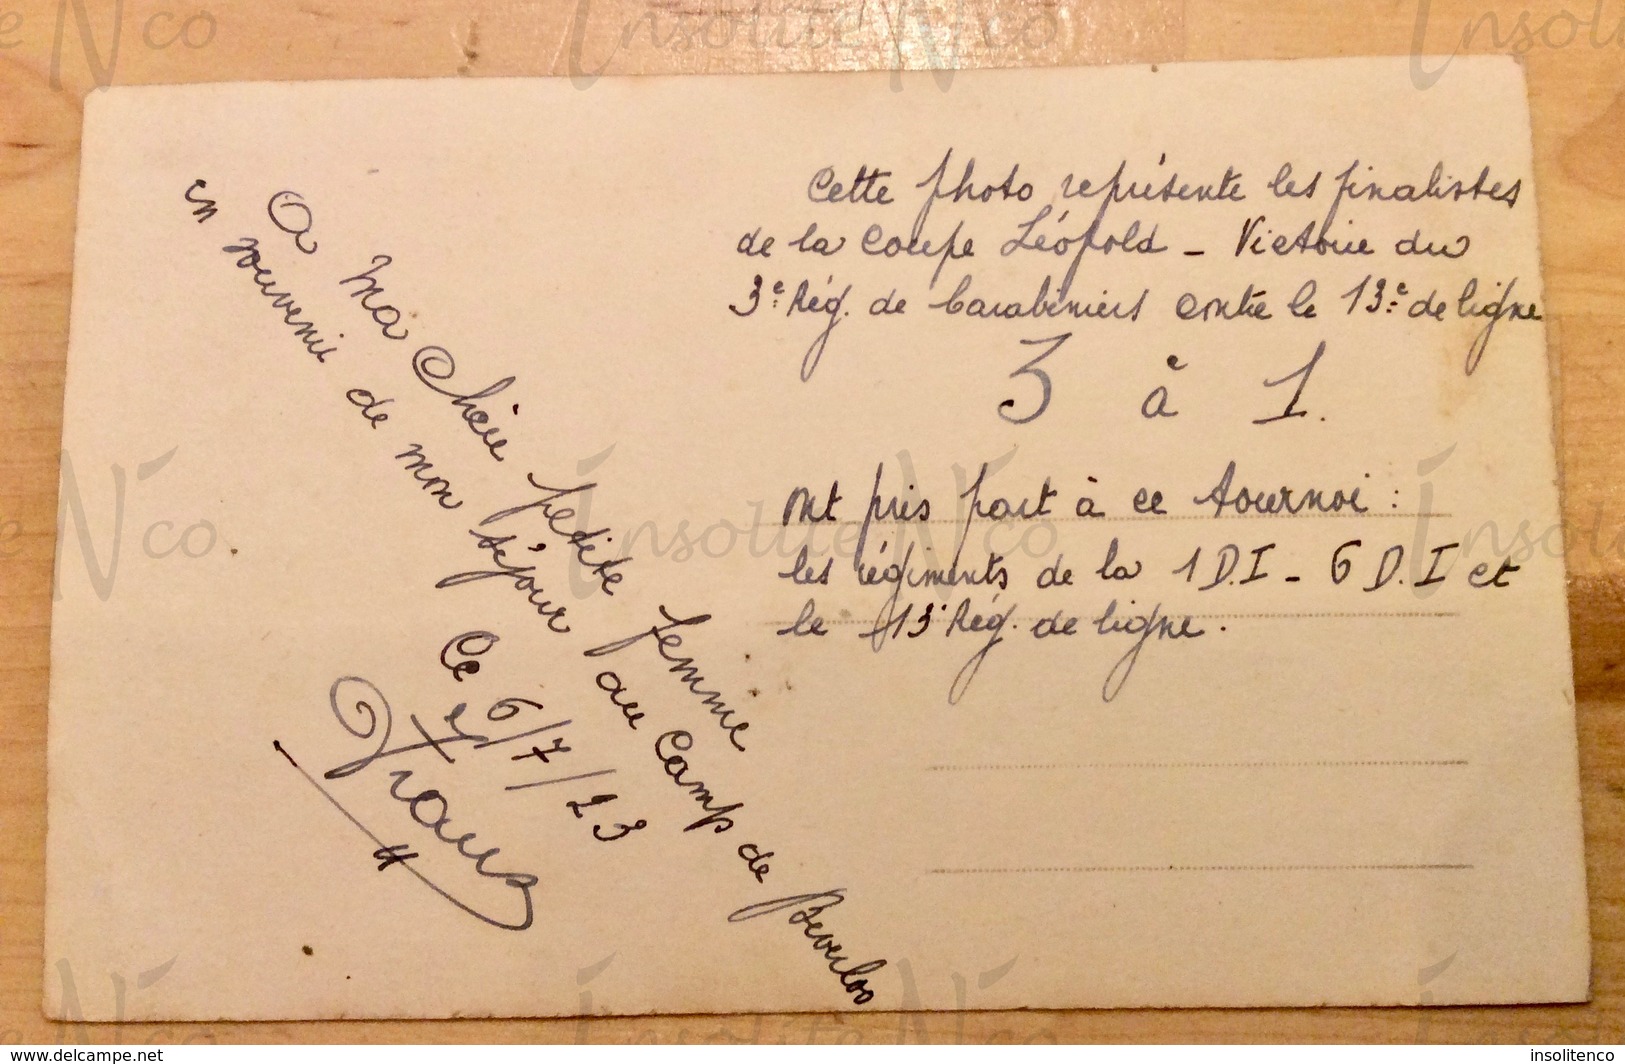 A ma chère petite femme
en souvenir de mon séjour au camp de Beverloo
Ce 6/7/23
Frans
Cette photo représente les finalistes
de la coupe Léopold - Victoire du
3e Rég. de Carabiniers contre le 13e de ligne
3 à 1.
Ont pris part à ce tournoi :
les régiments de la 1 D.I - 6 D.I et
le 13 Rég. de ligne.
Insolite N'co
www.delcampe.net
insolitenco